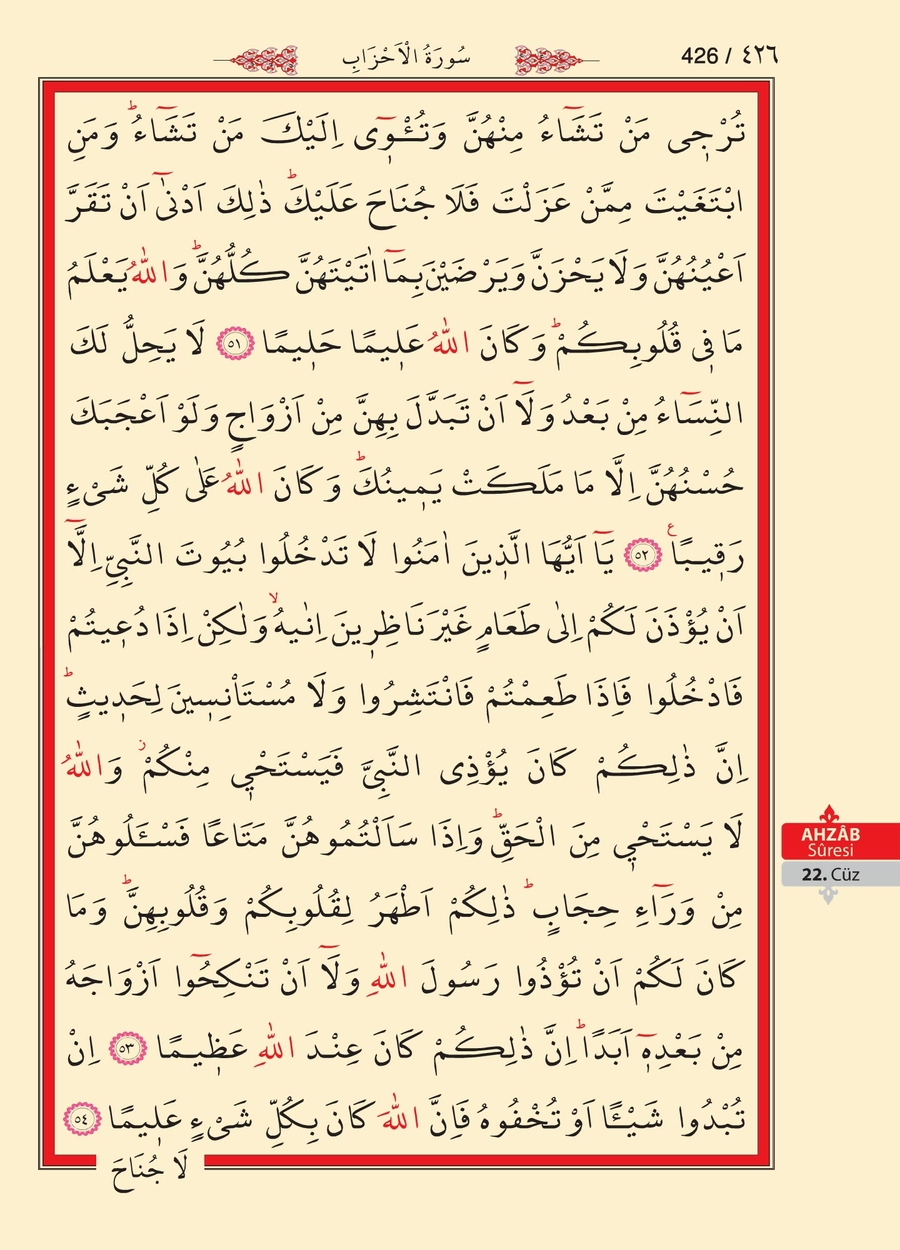 426 / ٤٢٦
سُورَةُ الْاَحْزَابِ
تُرْجٖى مَنْ تَشَٓاءُ مِنْهُنَّ وَتُـْٔوٖٓى اِلَيْكَ مَنْ تَشَٓاءُؕ وَمَنِ
ابْتَغَيْتَ مِمَّنْ عَزَلْتَ فَلَا جُنَاحَ عَلَيْكَؕ ذٰلِكَ اَدْنٰٓى اَنْ تَقَرَّ
اَعْيُنُهُنَّ وَلَا يَحْزَنَّ وَيَرْضَيْنَ بِمَٓا اٰتَيْتَهُنَّ كُلُّهُنَّؕ وَاللّٰهُ يَعْلَمُ
مَا فٖى قُلُوبِكُمْؕ وَكَانَ اللّٰهُ عَلٖيمًا حَلٖيمًا ٥١ لَا يَحِلُّ لَكَ
النِّسَٓاءُ مِنْ بَعْدُ وَلَٓا اَنْ تَبَدَّلَ بِهِنَّ مِنْ اَزْوَاجٍ وَلَوْ اَعْجَبَكَ
حُسْنُهُنَّ اِلَّا مَا مَلَكَتْ يَمٖينُكَؕ وَكَانَ اللّٰهُ عَلٰى كُلِّ شَیْءٍ
رَقٖيبًاࣖ ٥٢ يَٓا اَيُّهَا الَّذٖينَ اٰمَنُوا لَا تَدْخُلُوا بُيُوتَ النَّبِيِّ اِلَّٓا
اَنْ يُؤْذَنَ لَكُمْ اِلٰى طَعَامٍ غَيْرَ نَاظِرٖينَ اِنٰيهُۙ وَلٰكِنْ اِذَا دُعٖيتُمْ
فَادْخُلُوا فَاِذَا طَعِمْتُمْ فَانْتَشِرُوا وَلَا مُسْتَاْنِسٖينَ لِحَدٖيثٍؕ
اِنَّ ذٰلِكُمْ كَانَ يُؤْذِى النَّبِیَّ فَيَسْتَحْيٖ مِنْكُمْؗ وَاللّٰهُ
لَا يَسْتَحْيٖ مِنَ الْحَقِّؕ وَاِذَا سَاَلْتُمُوهُنَّ مَتَاعًا فَسْـَٔلُوهُنَّ
مِنْ وَرَٓاءِ حِجَابٍؕ ذٰلِكُمْ اَطْهَرُ لِقُلُوبِكُمْ وَقُلُوبِهِنَّؕ وَمَا
كَانَ لَكُمْ اَنْ تُؤْذُوا رَسُولَ اللّٰهِ وَلَٓا اَنْ تَنْكِحُٓوا اَزْوَاجَهُ
مِنْ بَعْدِهٖٓ اَبَدًاؕ اِنَّ ذٰلِكُمْ كَانَ عِنْدَ اللّٰهِ عَظٖيمًا ٥٣ اِنْ
تُبْدُوا شَيْـًٔا اَوْ تُخْفُوهُ فَاِنَّ اللّٰهَ كَانَ بِكُلِّ شَیْءٍ عَلٖيمًا ٥٤
لَا جُنَاحَ
AHZÂB
Sûresi
22. Cüz